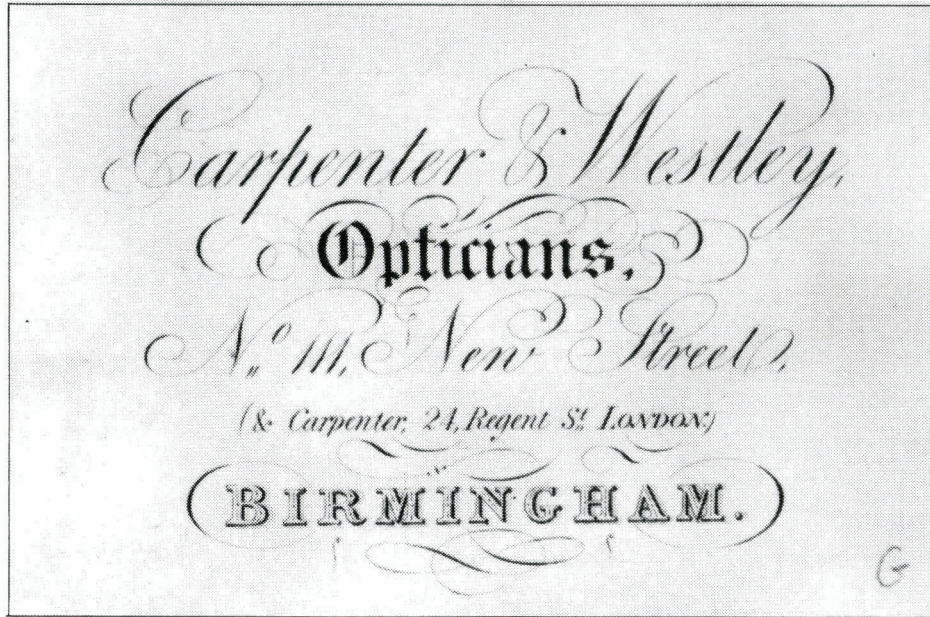 Carpenter & Westley,
Opticians,
No. 111, New Street,
(& Carpenter, 24, Regent St. LONDON)
BIRMINGHAM.
G